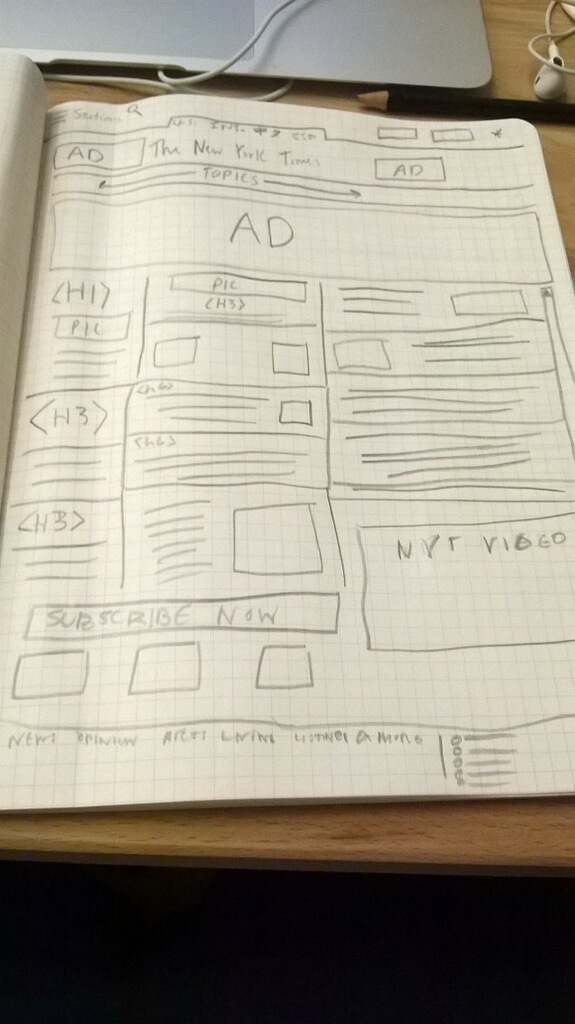 Sections
U.S. INT. 中文 ESP
AD The New York Times AD
TOPICS
AD
<H1>
PIC
<H3>
<H3>
PIC
<H3>
<h6>
<h6>
NYT VIDEO
SUBSCRIBE NOW
NEWS OPINION ARTS LIVING LISTINGS & MORE